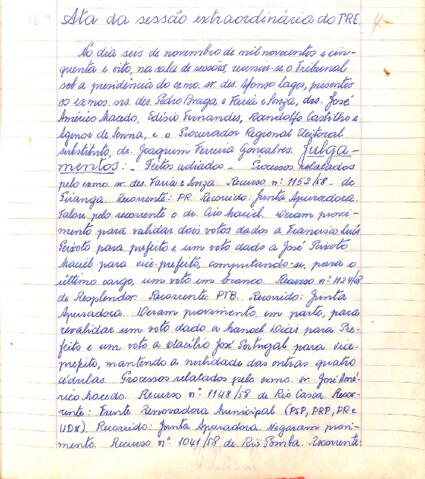 Ata da sessão extraordinária do TRE.
No dia seis de novembro de mil novecentos e cin-
quenta e oito, na sala de sessões, reuniu-se o Tribunal
sob a presidência do exmo. sr. des. Afonso Lages, presentes
os exmos. srs. des. Pedro Braga e Faria e Souza, drs. José
Américo Macedo, Edísio Fernandes, Randolfo Castilho e
Agenor de Senna, e o Procurador Regional Eleitoral
substituto, dr. Joaquim Ferreira Gonçalves. Julga-
mentos: - Feitos adiados - Processos relatados
pelo exmo. sr. des. Faria e Souza. Recurso nº 1152/58 - de
Piranga. Recorrente: PR. Recorrido: Junta Apuradora.
Falou pelo recorrente o dr. Ciro Maciel. Deram provi-
mento para validar dois votos dados a Francisco Luis
Peixoto para prefeito e um voto dado a José Peixoto
Maciel para vice-prefeito, computando-se, para o
último cargo, um voto em branco. Recurso nº 1124/58
de Resplendor. Recorrente PTB. Recorrido: Junta
Apuradora. Deram provimento, em parte, para
revalidar um voto dado a Manoel Dias para Pre-
feito e um voto a Otacílio José Portugal para vice-
prefeito, mantendo a nulidade das outras quatro
cédulas. Processos relatados pelo exmo. sr. José Amé-
rico Macedo. Recurso nº 1148/58 de Rio Casca. Recor-
rente: Frente Renovadora Municipal (PSP, PRP, PR e
UDN). Recorrido: Junta Apuradora. Negaram provi-
mento. Recurso nº 1041/58 de Rio Pomba. Recorrente: